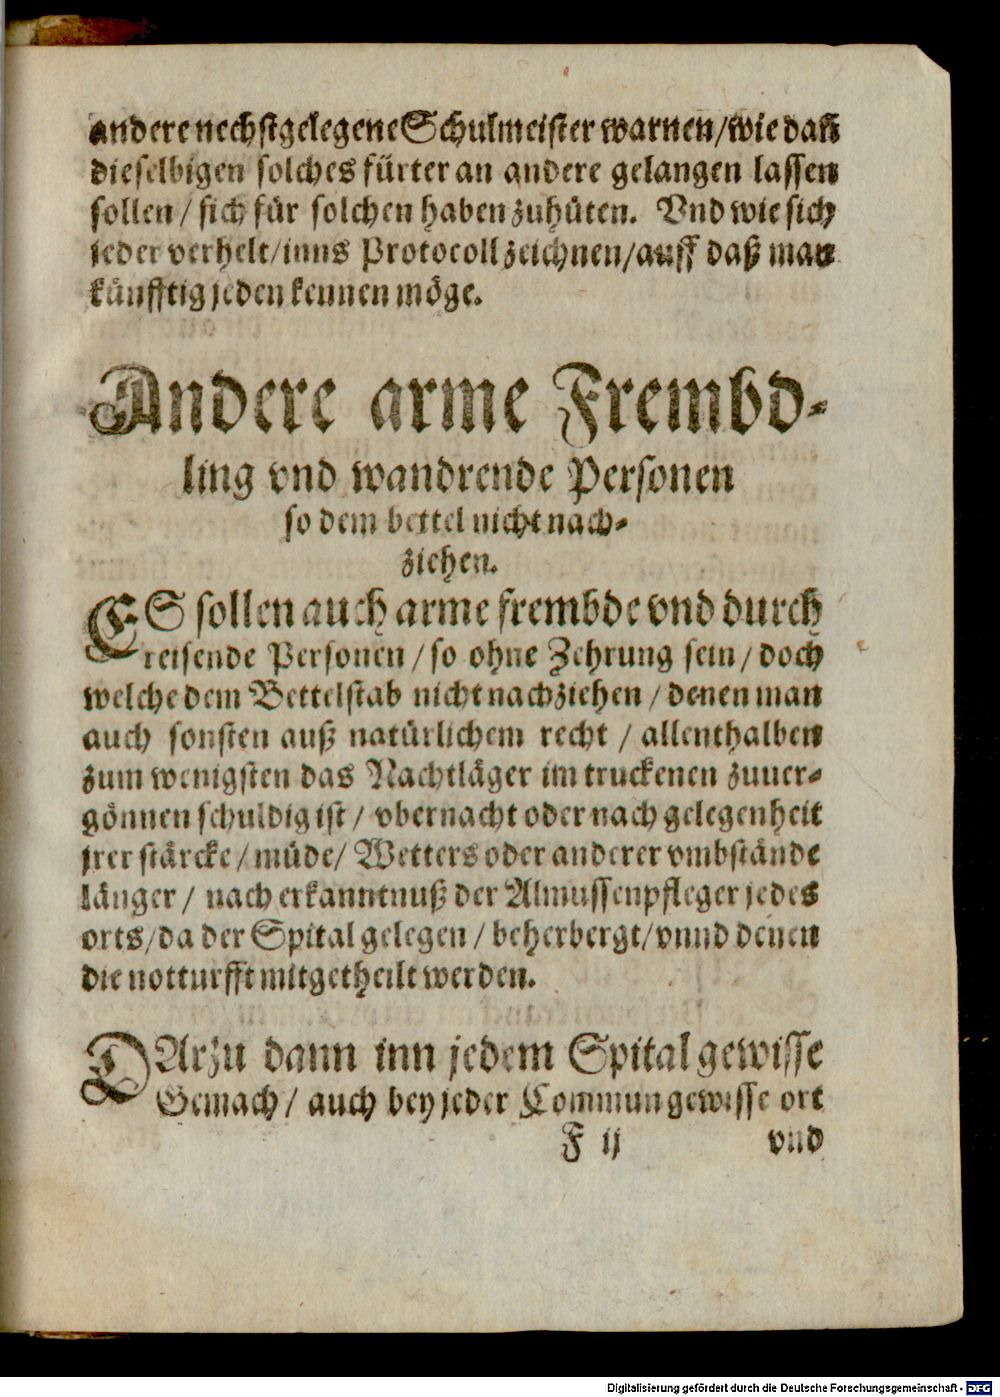 andere nechstgelegene Schulmeister warnen/wie dann
dieselbigen solches fürter an andere gelangen lassen
sollen / sich für solchen haben zuhüten. Vnd wie sich
jeder verhelt/inns Protocoll zeichnen/auff daß man
künfftig jeden kennen möge.
Andere arme Frembd-
ling vnd wandrende Personen
so dem bettel nicht nach-
ziehen.
ES sollen auch arme frembde vnd durch
reisende Personen / so ohne Zehrung sein / doch
welche dem Bettelstab nicht nachziehen / denen man
auch sonsten auß natürlichem recht / allenthalben
zum wenigsten das Nachtläger im truckenen zuuer-
gönnen schuldig ist / vbernacht oder nach gelegenheit
jrer stärcke / müde / Wetters oder anderer vmbstände
länger / nach erkanntnuß der Almussenpfleger jedes
orts/da der Spital gelegen / beherbergt/vnnd denen
die notturfft mitgetheilt werden.
DArzu dann inn jedem Spital gewisse
Gemach / auch bey jeder Commun gewisse ort
F ij vnd
Digitalisierung gefördert durch die Deutsche Forschungsgemeinschaft - DFG